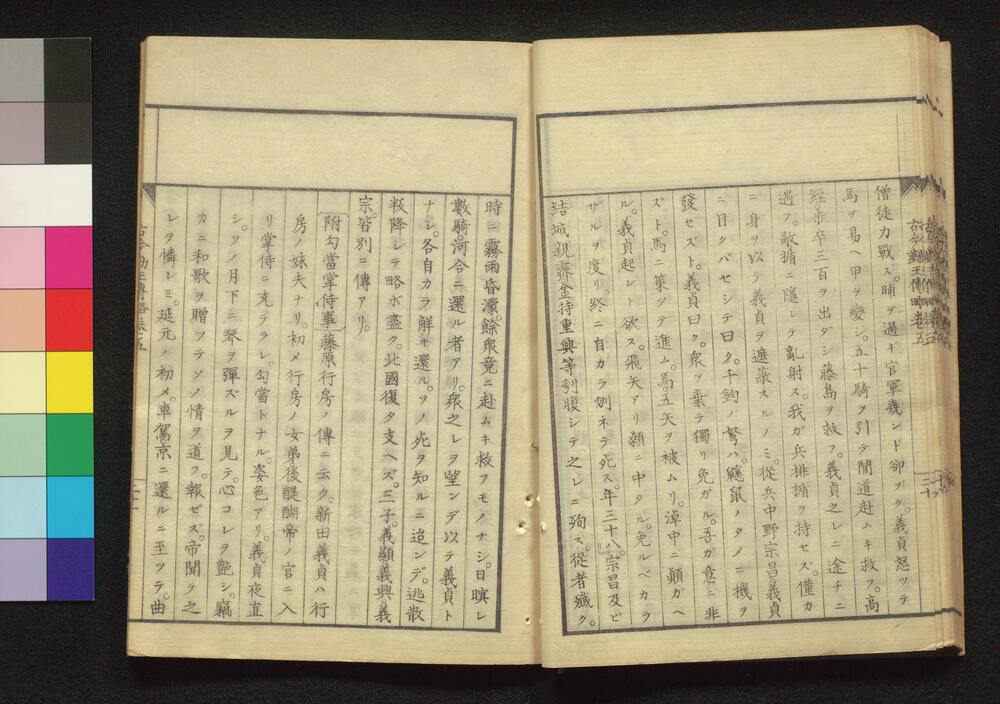 僧徒力戰ス。晡ヲ過キ官軍幾ンド卻ゾク。義貞怒ツテ
馬ヲ易ヘ甲ヲ變シ。五十騎ヲ引テ間道赴ムキ救フ。高
經。歩卒三百ヲ出ダシ藤島ヲ救フ。義貞之レニ途チニ
遇フ。敵楯ニ隱レテ亂射ス。我ガ兵排楯ヲ持セス。僅カ
ニ身ヲ以テ義貞ヲ遮蔽スルノミ。從兵中野宗昌義貞
ニ目クバセシテ曰ク。千鈞ノ弩ハ鼷鼠ノタメニ機ヲ
發セズト。義貞曰ク。衆ヲ棄テ獨リ免ガル。吾ガ意ニ非
ズト。馬ニ策ツテ進ム。馬五矢ヲ被ムリ。淖中ニ顛ガヘ
ル。義貞起ント欲ス。飛矢アリ額ニ中タル。免ルベカラ
ザルヲ度リ。終ニ自カラ刎ネテ死ス。年三十八。宗昌及ビ
結城親齊金持重興等刺腹シテ之レニ殉ス。從者殲ク。
時ニ霧雨昏濛。餘衆竟ニ赴ムキ救フモノナシ。日暝レ
數騎河合ニ還ル者アリ。衆之レヲ望ンデ以テ義貞ト
ナシ。各自カラ解キ還ル。ソノ死ヲ知ルニ迨ンデ。逃散
叛降シテ略ボ盡ク。北國復タ支ヘズ。三子。義顯義興義
宗。皆別ニ傳アリ。
附勾當掌侍事 藤原行房ノ傳ニ云ク。新田義貞ハ行
房ノ妹夫ナリ。初メ行房ノ女弟後醍醐帝ノ官ニ入
リ掌侍ニ充テラレ。勾當トナル。姿色アリ。義貞夜直
シ。ソノ月下ニ琴ヲ彈スルヲ見テ。心コレヲ艷シ。竊
カニ和歌ヲ贈ツテソノ情ヲ道フ。報ゼズ。帝聞テ之
レヲ憐レミ。延元ノ初メ。車駕京ニ還ルニ至ツテ。曲